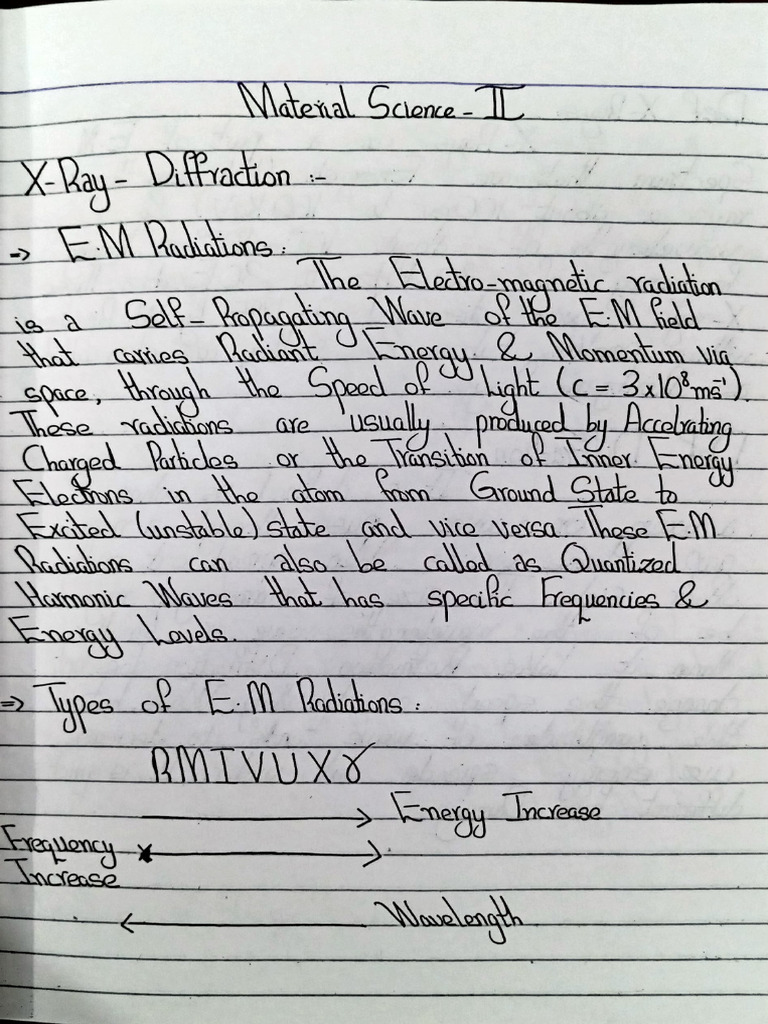 Material Science - II
X-Ray - Diffraction :-
→ E.M Radiations :
The Electro-magnetic radiation
is a Self-Propagating Wave of the E.M field
that carries Radiant Energy & Momentum via
space, through the Speed of Light (c = 3x10⁸ms⁻¹).
These radiations are usually produced by Accelrating
Charged Particles or the Transition of Inner Energy
Electrons in the atom from Ground State to
Excited (unstable) state and vice versa. These E.M
Radiations can also be called as Quantized
Harmonic Waves that has specific Frequencies &
Energy Levels.
⇒ Types of E.M Radiations :
RMIVUXγ
→ Energy Increase
Frequency
Increase
← Wavelength